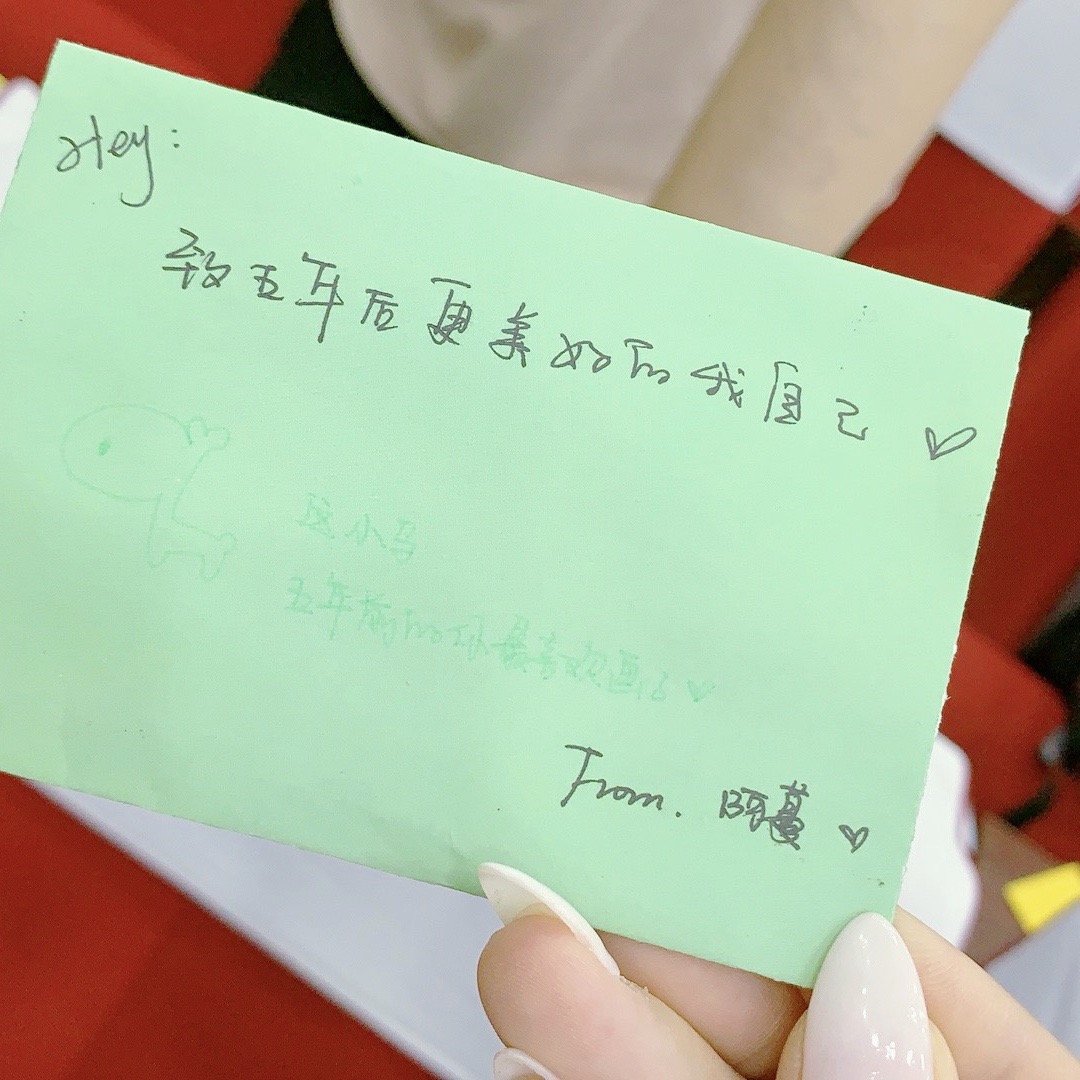 Hey:
致五年后更美好的我自己♡
这小马
五年前的你最喜欢画了♡
From. 阿蔓♡